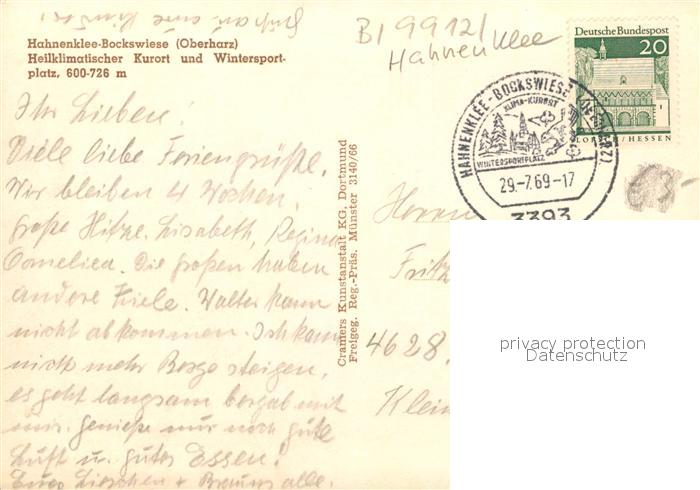 Hahnenklee-Bockswiese (Oberharz)
Heilklimatischer Kurort und Wintersport-
platz, 600-726 m
Ihr Lieben!
Viele liebe Feriengrüße.
Wir bleiben 4 Wochen.
Große Hitze. Lisabeth, Regina
Cornelia. Die großen haben
andere Ziele. Walter kann
nicht abkommen. Ich kann
nicht mehr Berge steigen,
es geht langsam bergab mit
mir. genieße nur noch gute
Luft u. gutes Essen!
Eure Lieschen + alle.
Cramers Kunstanstalt KG, Dortmund
Freigeg. Reg.-Präs. Münster 3140/66
B/9912/
Hahnenklee
Deutsche Bundespost
20
LORSCH/HESSEN
HAHNENKLEE-BOCKSWIESE
KLIMA-KURORT
WINTERSPORTPLATZ
29.-7.69-17
3393
Herrn
Fritz
4628
Klein
privacy protection
Datenschutz